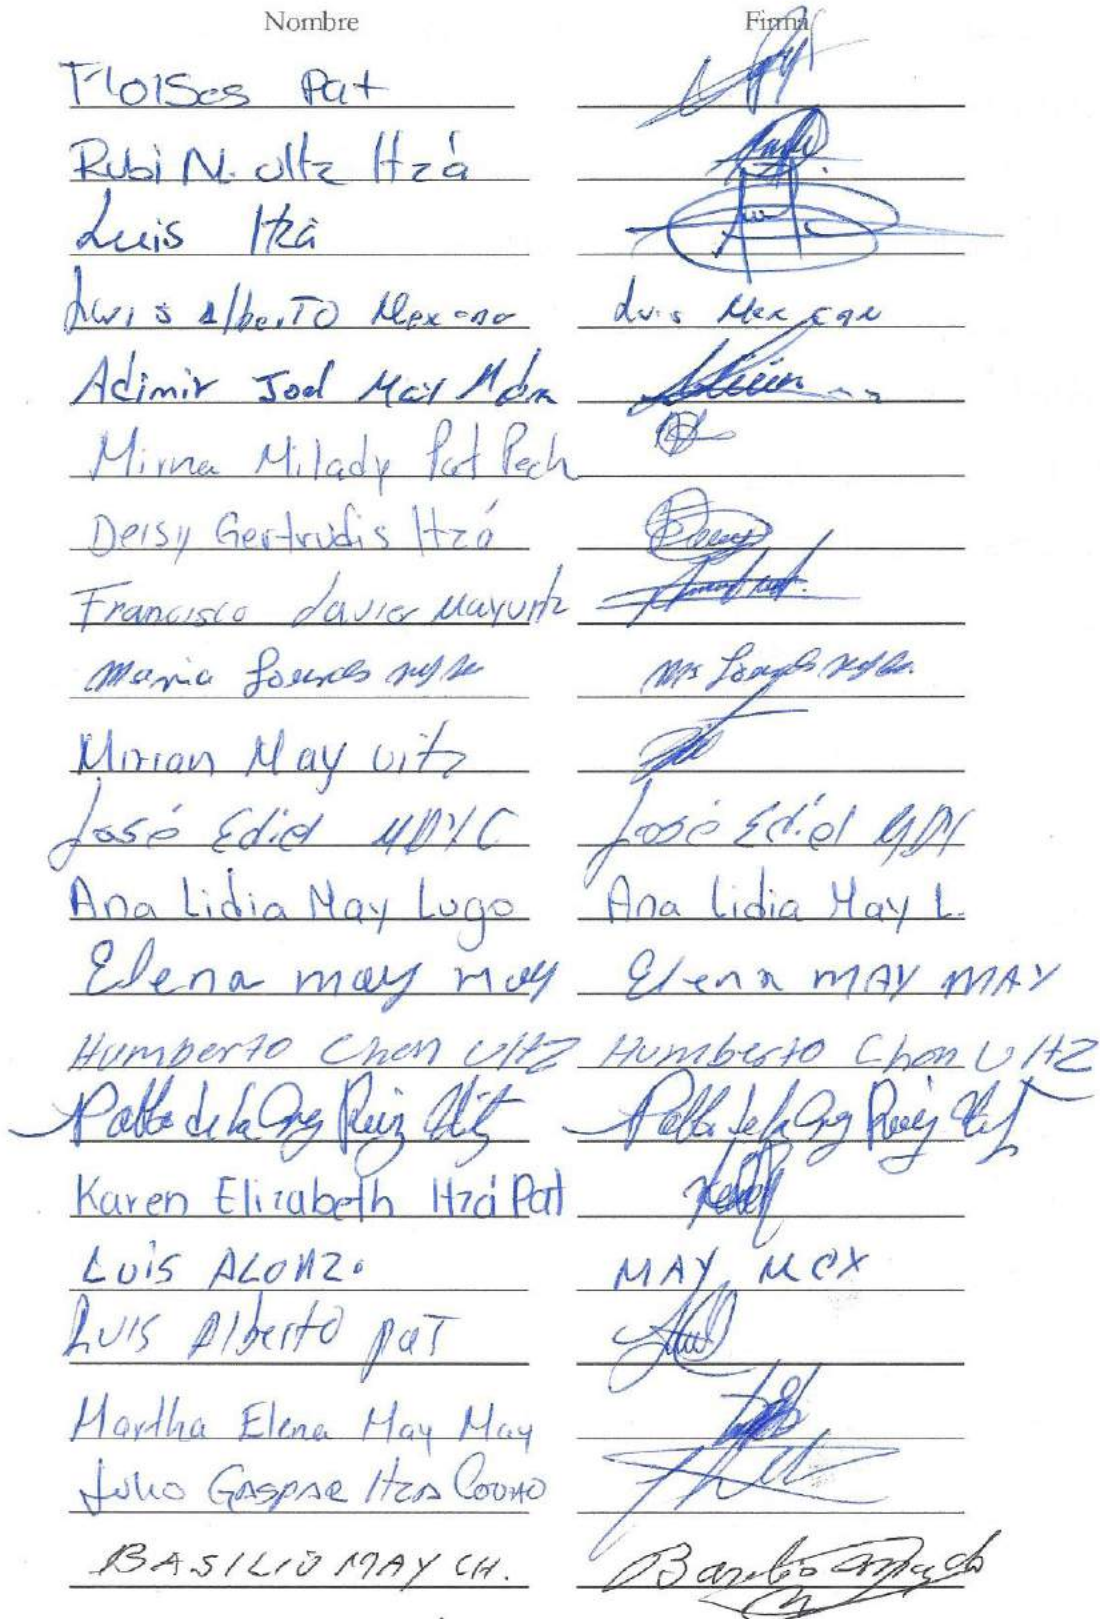 Nombre Firma
Moises Pat
Rubi N. Uitz Itzá
Luis Itzá
Luis Alberto Mexicano Luis Mexicano
Adimir Joel May
Mirna Milady Pat Pech
Deisy Gertrudis Itzá
Francisco Javier May uitz
Maria Lourdes
Mirian May uitz
José Ediel MAY C José Ediel MAY
Ana Lidia May Lugo Ana Lidia May L.
Elena may may Elena MAY MAY
Humberto Chan Uitz Humberto Chan Uitz
Pablo de la Cruz Ruiz Uitz Pablo de la Cruz Ruiz Uitz
Karen Elizabeth Itzá Pat
Luis ALONZO MAY MEX
Luis Alberto paT
Martha Elena May May
Julio GASPAR Itza
BASILIO MAY CH. Basilio